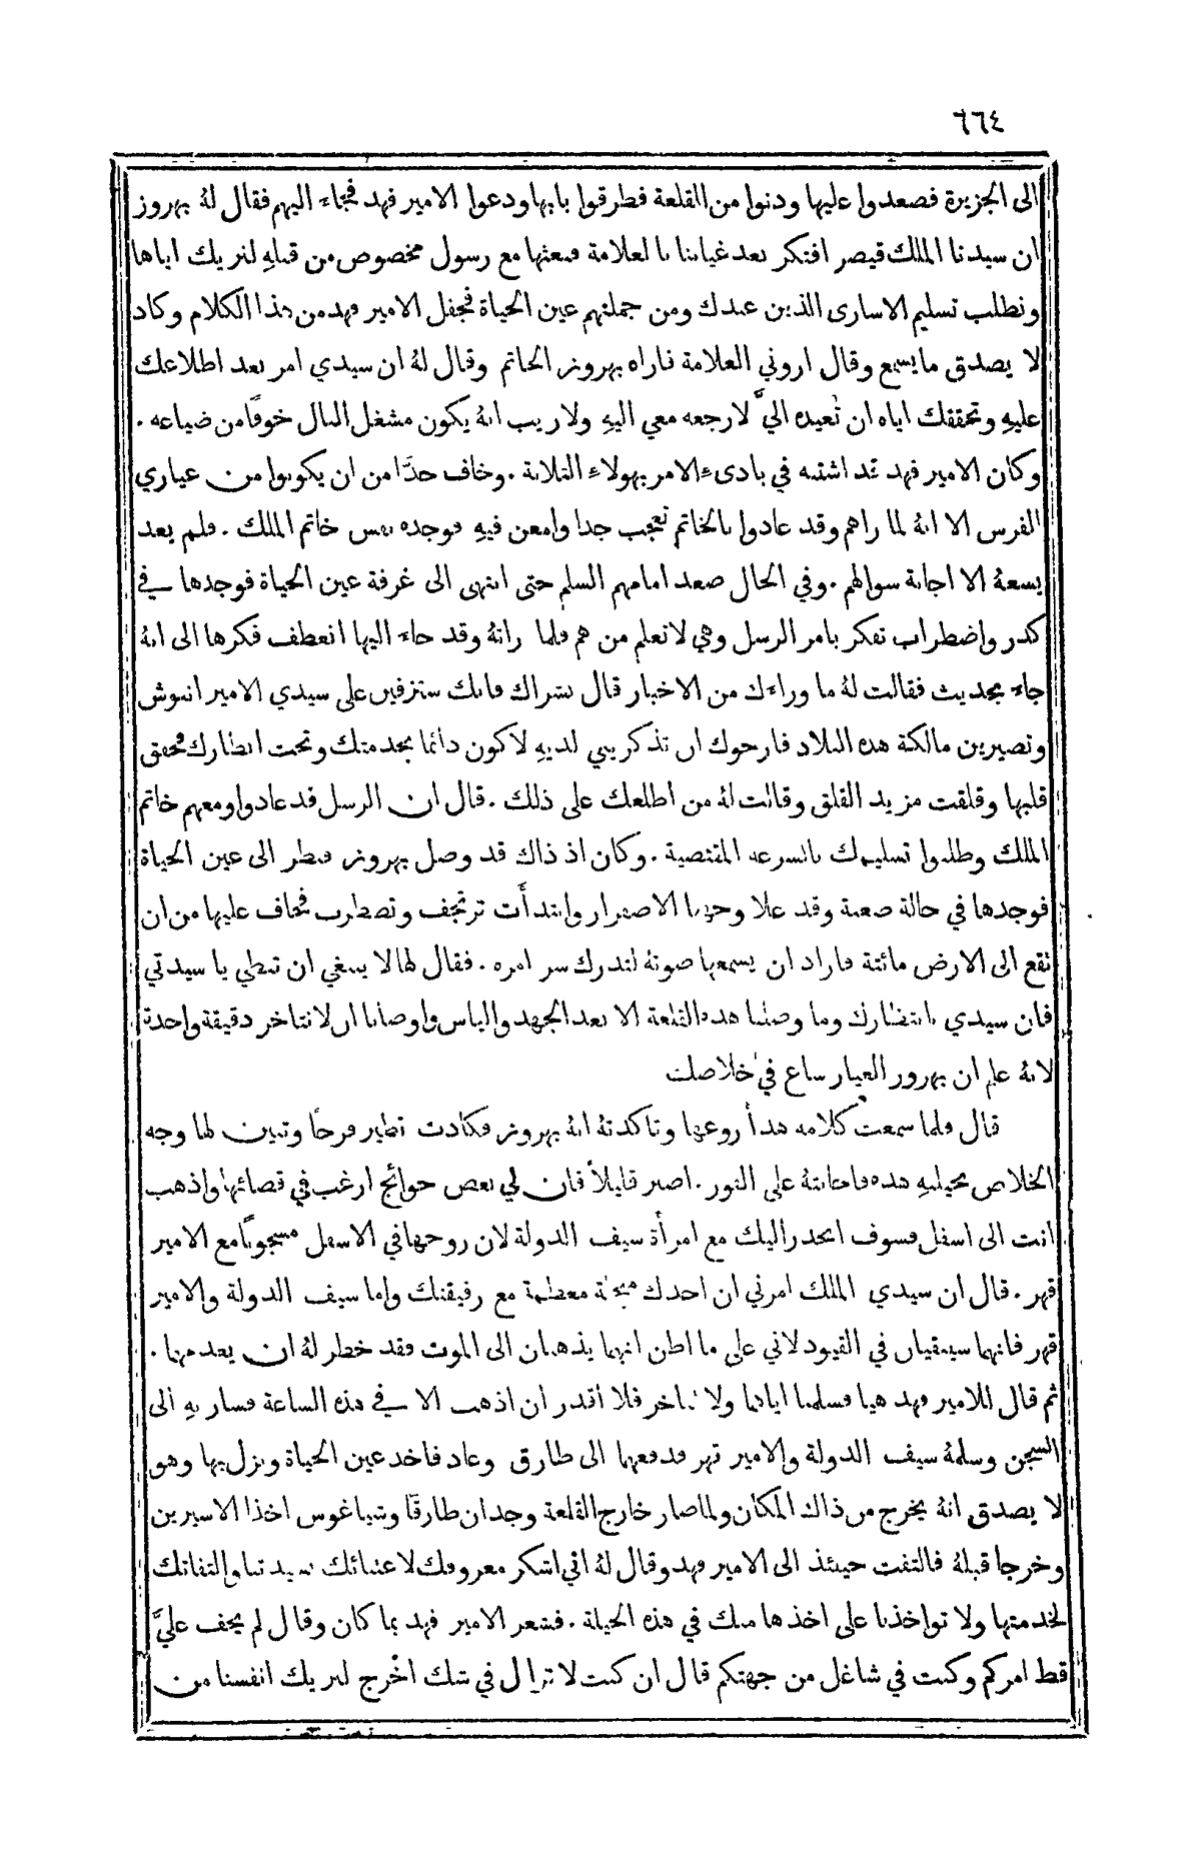 ٦٦٤
الى الجزيرة فصعدوا عليها ودنوا من القلعة فطرقوا بابها ودعوا الامير فهد فجاء اليهم فقال لهُ بهروز
ان سيدنا الملك قيصر افتكر بعد غيابنا بالعلامة فبعثها مع رسول مخصوص من قبلهِ لنريك اياها
ونطلب تسليم الاسارى الذين عندك ومن جملتهم عين الحياة فجفل الامير فهد من هذا الكلام وكاد
لا يصدق ما يسمع وقال اروني العلامة فاراه بهروز الخاتم وقال لهُ ان سيدي امر بعد اطلاعك
عليهِ وتحققك اياه ان تُعيده اليَّ لارجعه معي اليهِ ولا ريب انهُ يكون مشغل البال خوفًا من ضياعه .
وكان الامير فهد قد اشتبه في بادىء الامر بهولاء الثلاثة . وخاف جدًّا من ان يكونوا من عياري
الفرس الا انهُ لما راهم وقد عادوا بالخاتم تعجب جدا وامعن فيهِ فوجده نفس خاتم الملك . فلم يعد
يسعهُ الا اجابة سوالهم . وفي الحال صعد امامهم السلم حتى انتهى الى غرفة عين الحياة فوجدها في
كدر واضطراب تفكر بامر الرسل وهي لا تعلم من هم فلما راتهُ وقد جاء اليها انعطف فكرها الى انهُ
جاء بحديث فقالت لهُ ما وراءك من الاخبار قال بشراك فانك ستزفين على سيدي الامير انبوش
وتصيرين مالكة هذه البلاد فارجوك ان تذكريني لديهِ لاكون دائما بخدمتك وتحت انظارك فخفق
قلبها وقلقت مزيد القلق وقالت لهُ من اطلعك على ذلك . قال ان الرسل قد عادوا ومعهم خاتم
الملك وطلبوا تسليمك بالسرعة المقتضية . وكان اذ ذاك قد وصل بهروز فنظر الى عين الحياة
فوجدها في حالة صعبة وقد علا وجهها الاصفرار وابتدأَت ترتجف وتضطرب فخاف عليها من ان
تقع الى الارض مائتة فاراد ان يسمعها صوتهُ لتدرك سر امره . فقال لها لا ينبغي ان تبطي يا سيدتي
فان سيدي بانتظارك وما وصلنا هذه القلعة الا بعد الجهد والباس واوصانا ان لا نتاخر دقيقة واحدة
لانهُ علم ان بهروز العيار ساع في خلاصك
قال فلما سمعت كلامه هدأَ روعها وتاكدتهُ انهُ بهروز فكادت تطير فرحًا وتبين لها وجه
الخلاص بحيلتهِ هذه فاجابتهُ على الفور . اصبر قليلاً فان لي بعض حوائج ارغب في قضائها واذهب
انت الى اسفل فسوف انحدر اليك مع امرأة سيف الدولة لان زوجها في الاسفل مسجونًا مع الامير
قهر . قال ان سيدي الملك امرني ان اخدك معظمة مع رفيقتك واما سيف الدولة والامير
قهر فانهما سيبقيان في القيود لاني على ما اظن انهما يذهبان الى الموت فقد خطر لهُ ان يعدمهما .
ثم قال للامير فهد هيا فسلمنا اياهما ولا تتاخر فلا اقدر ان اذهب الا في هذه الساعة فسار بهِ الى
السجن وسلمهُ سيف الدولة والامير قهر فدفعهما الى طارق وعاد فاخد عين الحياة ونزل بها وهو
لا يصدق انهُ يخرج من ذاك المكان ولما صار خارج القلعة وجد ان طارقًا وشياغوس اخذا الاسيرين
وخرجا قبلهُ فالتفت حينئذ الى الامير فهد وقال لهُ اني اشكر معروفك لاعتنائك بسيدتنا والتفاتك
لخدمتها ولا تواخذنا على اخذها منك في هذه الحيلة . فشعر الامير فهد بما كان وقال لم يخف عليَّ
قط امركم وكنت في شاغل من جهتكم قال ان كنت لا تزال في شك اخْرج لنريك انفسنا من